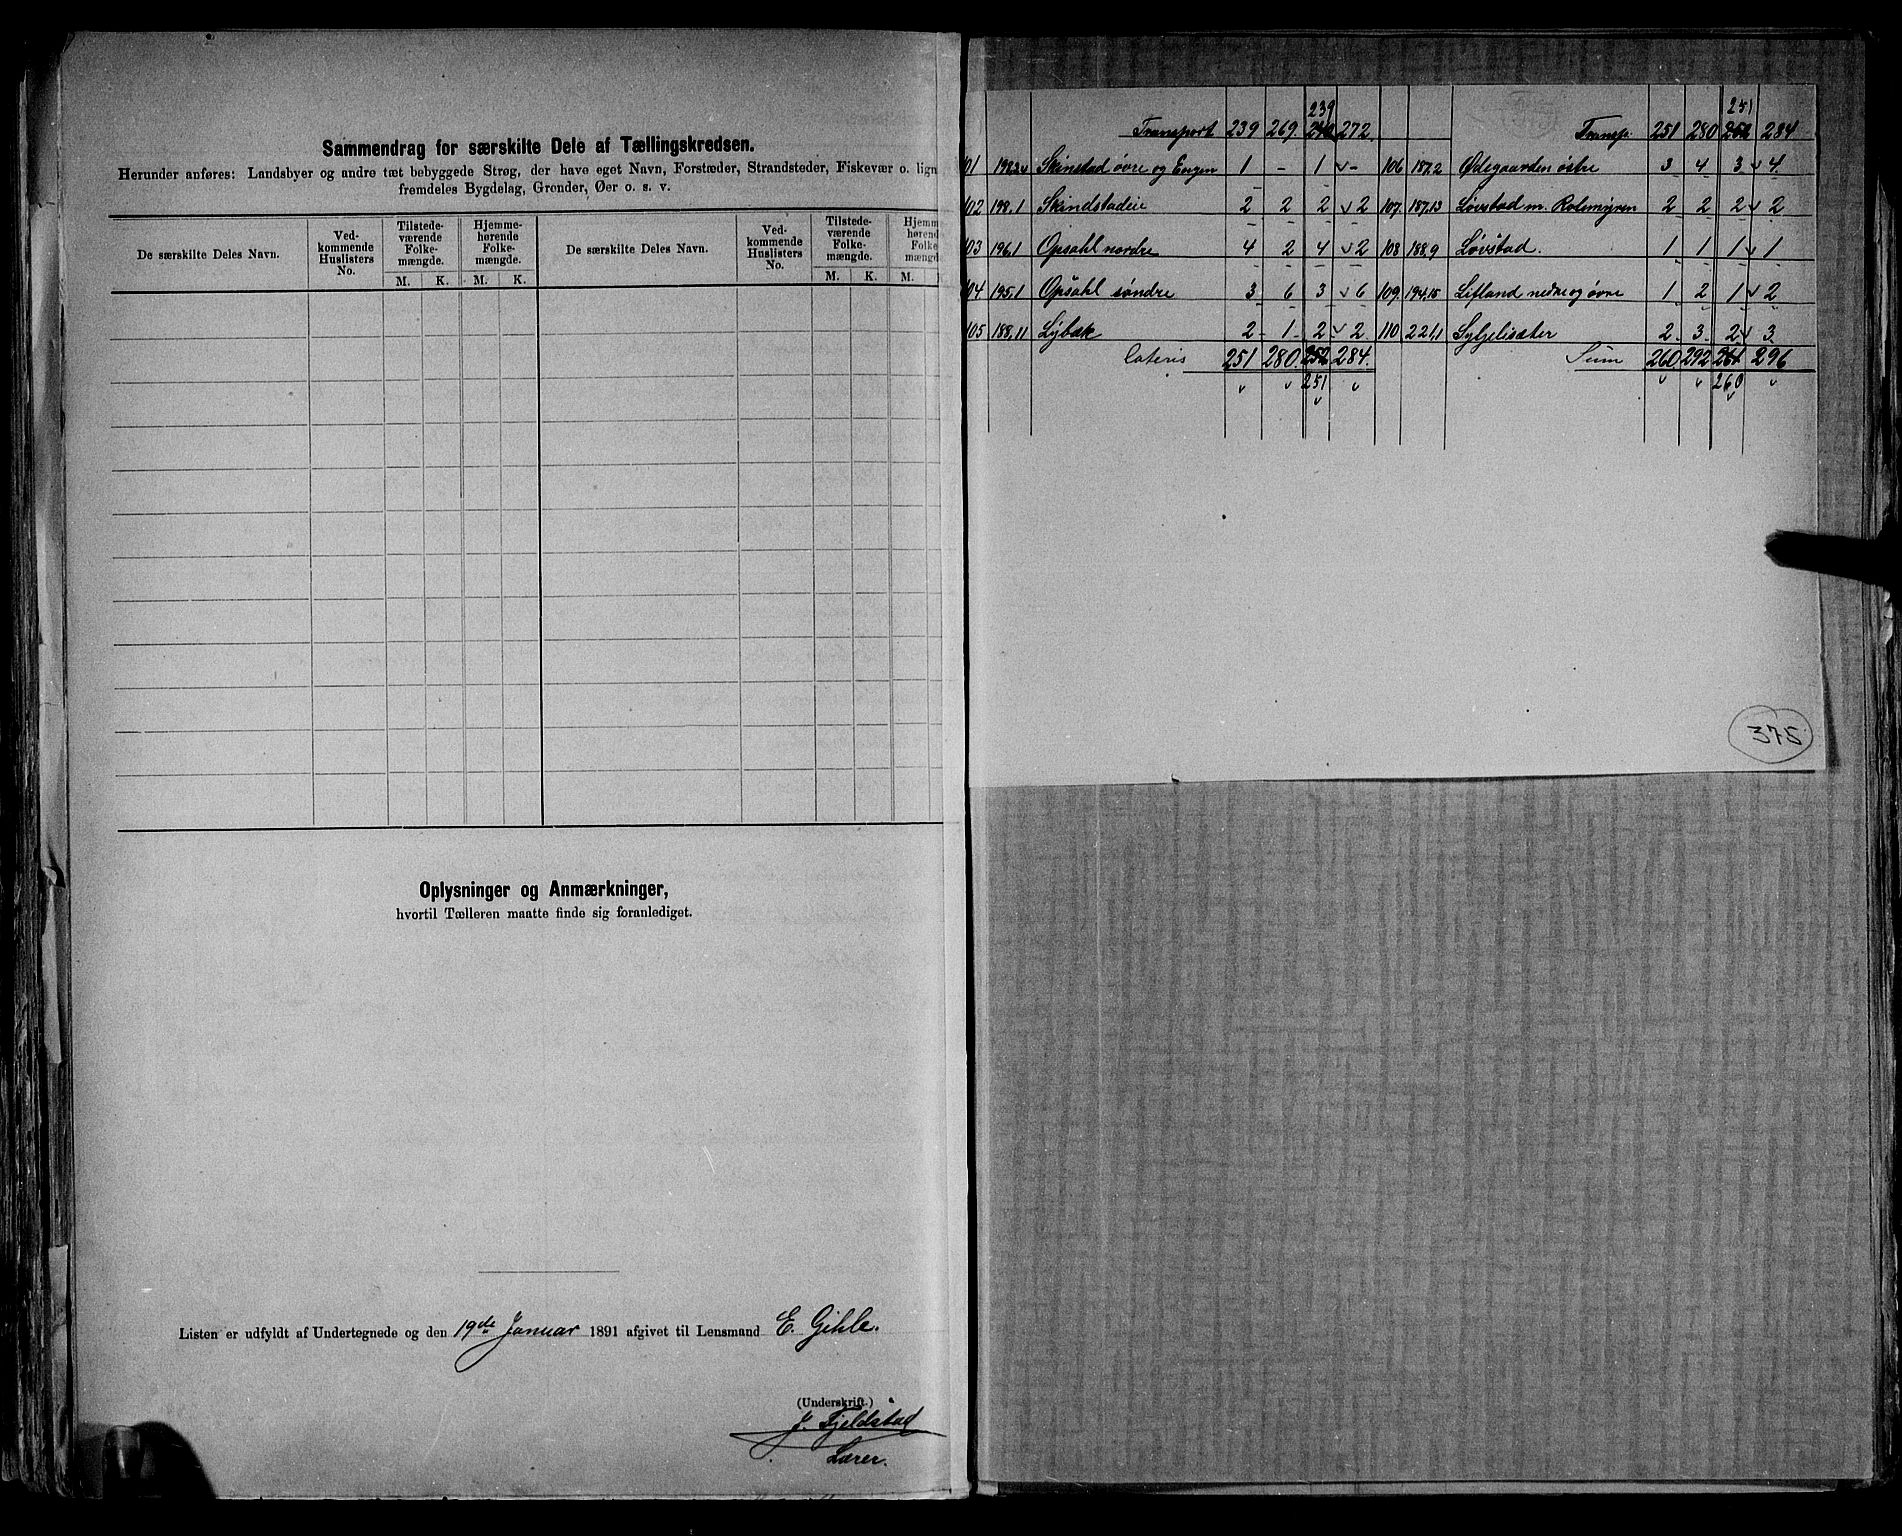 Sammendrag for særskilte Dele af Tællingskredsen.
Herunder anføres: Landsbyer og andre tæt bebyggede Strøg, der have eget Navn, Forstæder, Strandsteder, Fiskevær o. lign
fremdeles Bygdelag, Grender, Øer o. s. v.
De særskilte Deles Navn. Ved-kommende Huslisters No. Tilstede-værende Folke-mængde. Hjemme-hørende Folke-mængde. De særskilte Deles Navn. Ved-kommende Huslisters No. Tilstede-værende Folke-mængde. Hjemm hørend Folke mængd
M. K. M. K. M. K. M.
Oplysninger og Anmærkninger,
hvortil Tælleren maatte finde sig foranlediget.
Listen er udfyldt af Undertegnede og den 19de Januar 1891 afgivet til Lensmand E. Gihle.
(Underskrift.)
J. Fjeldstad
Lærer.
239 251
Transport 239 269. 240 272. Transp. 251 280 252 284
01 198,3,4 Skinstad øvre og Engen 1 - 1 v - 106 187,2 Ødegaarden østre 3 4 3 v 4.
02 198,1 Skindstadeie 2 2 2 v 2 107. 187,13 Løvstad m. Rolsmyren 2 2 2 v 2
03 196,1 Opsahl nordre 4 2 4 v 2 108 188,9 Løvstad. 1 1 1 v 1
04 195,1 Opsahl søndre 3 6 3 v 6 109. 194,15 Lifland nedre og øvre 1 2 1 v 2
05 188,11 Lybæk 2 1 2 v 2 110 221,1 Syljelisæter 2 3 2 v 3
Lateris 251 280. 252 284. Sum 260 292 261 296
v v 251 v v v 260 v
v v
375